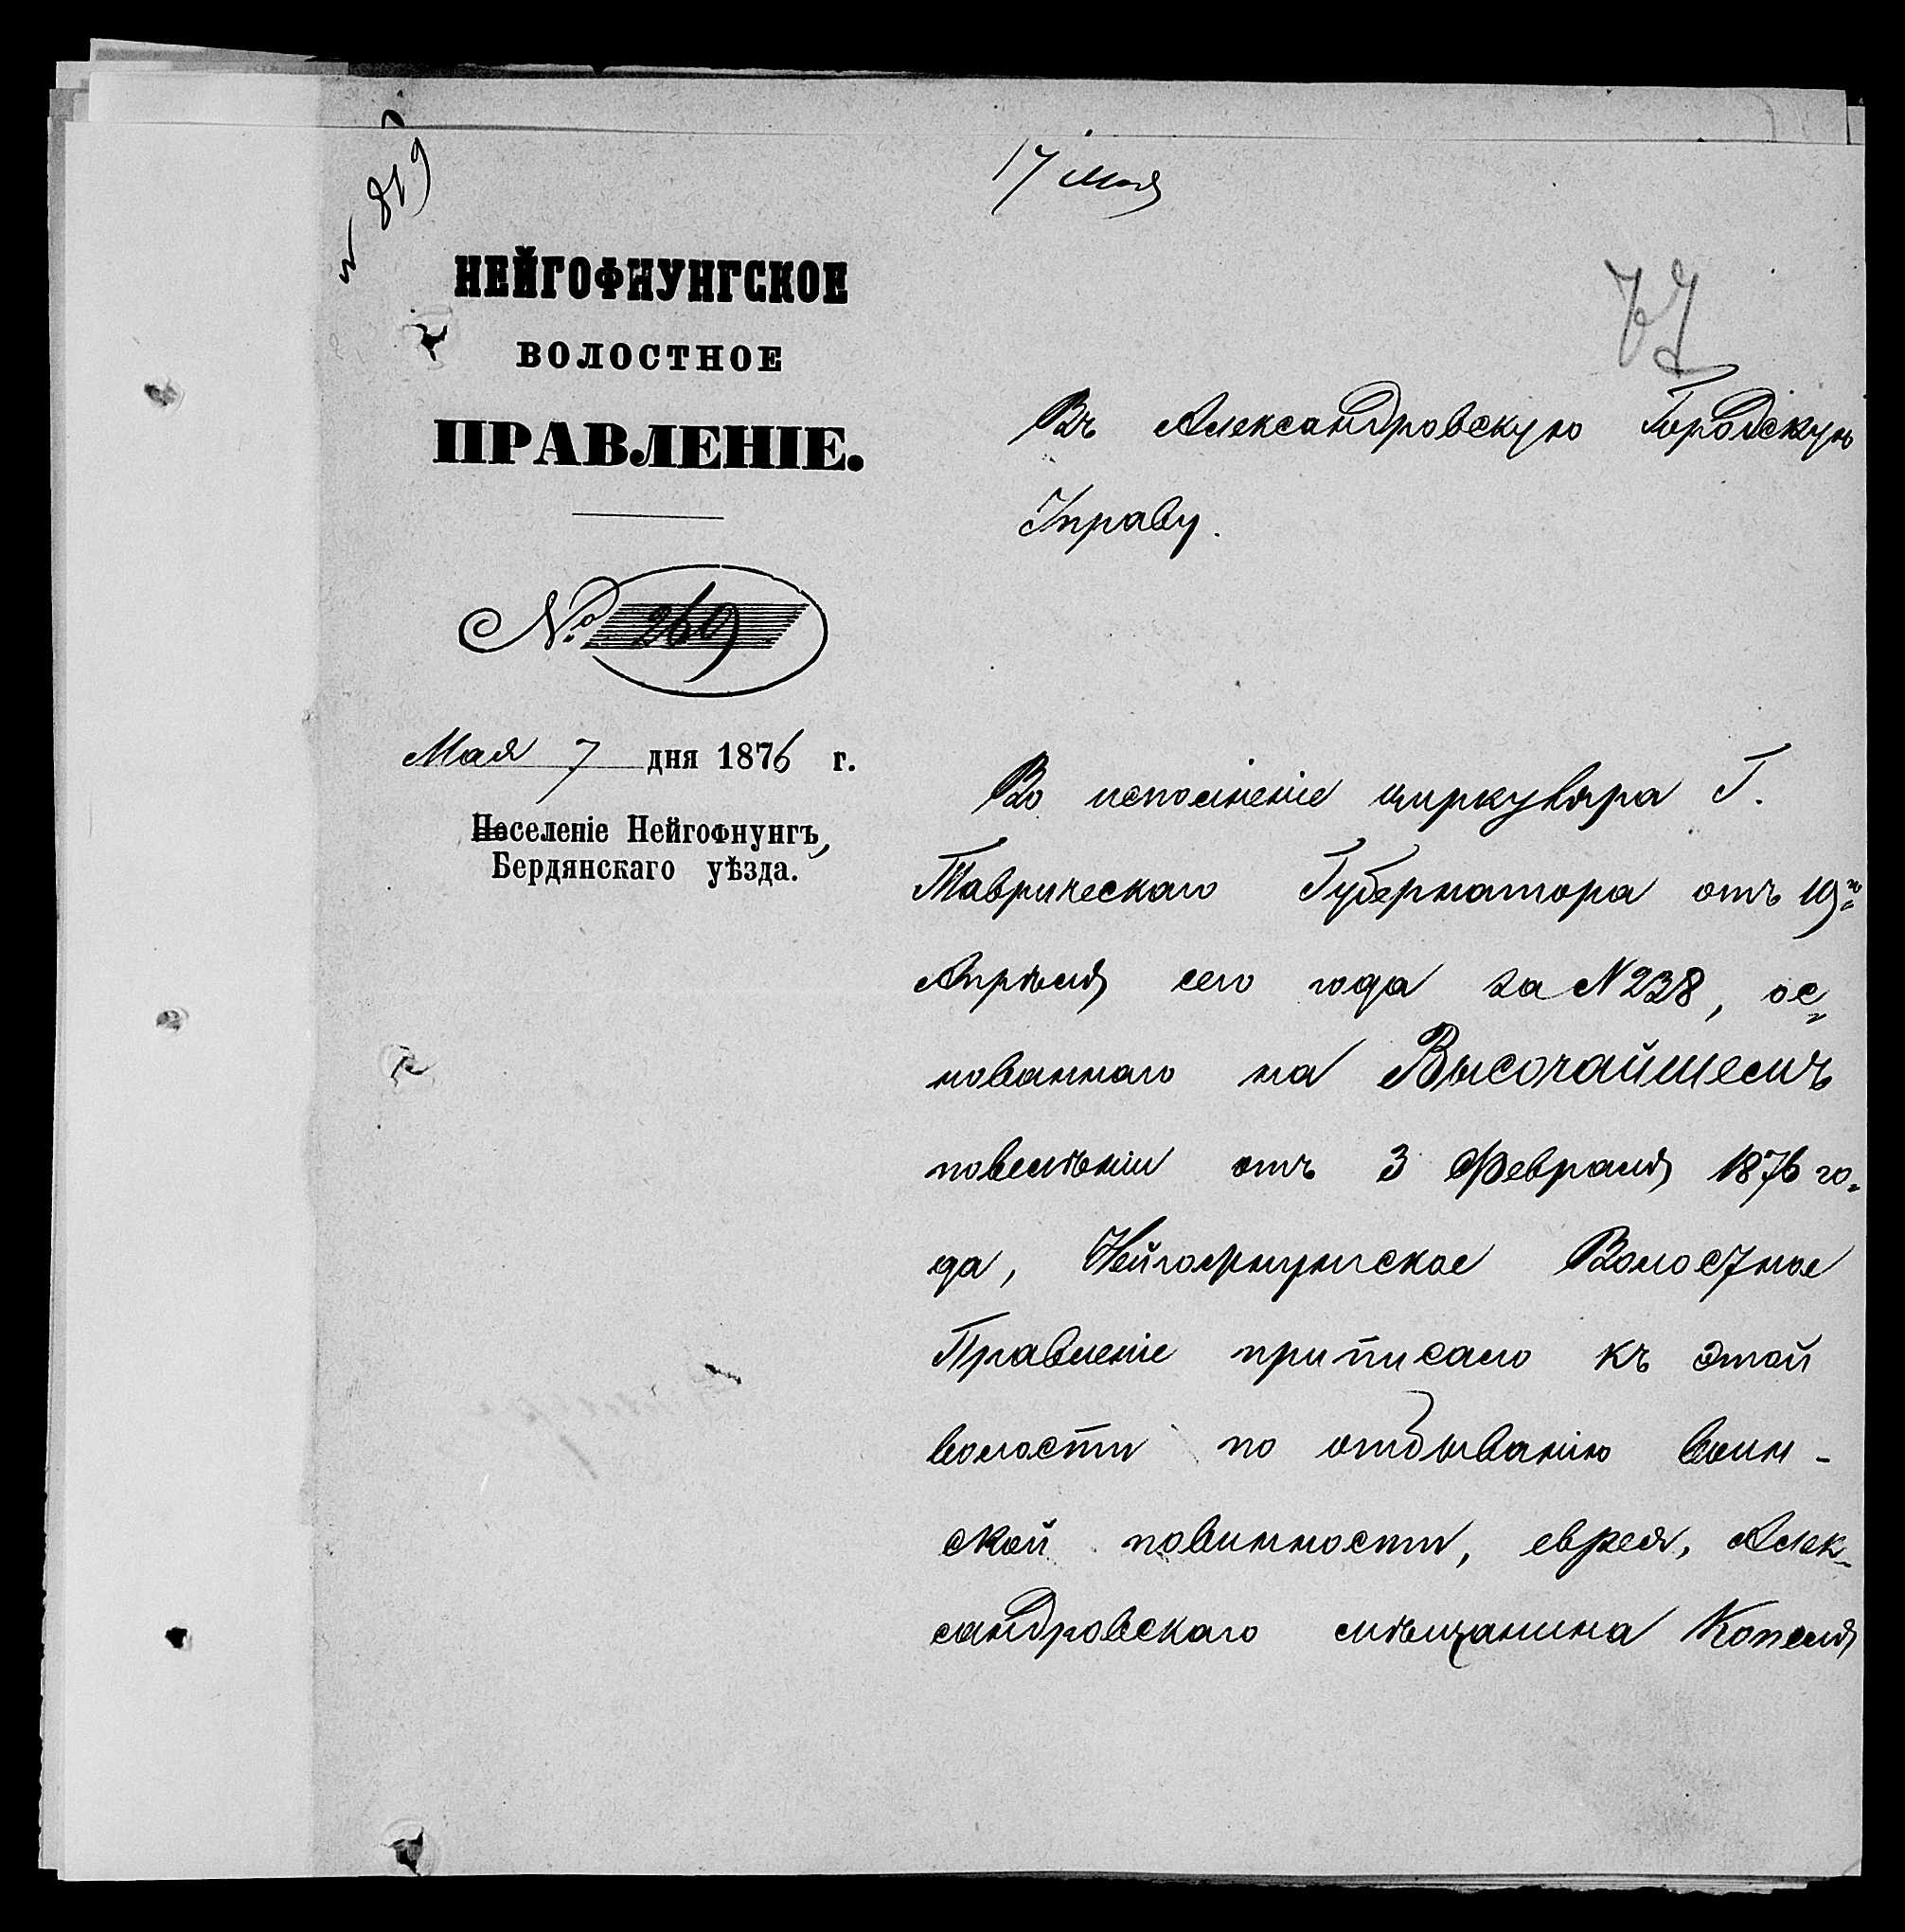 № 819
17 Мая
77
НЕЙГОФНУНГСКОЕ
ВОЛОСТНОЕ
ПРАВЛЕНІЕ.
№ 269
Мая 7 дня 1876 г.
Населеніе Нейгофнунгъ,
Бердянскаго уѣзда.
Въ Александровскую Городскую
Управу.
Во исполненіе циркуляра Г.
Таврическаго Губернатора отъ 19го
Апрѣля сего года за N 238, ос„
нованнаго на Высочайшемъ
повелѣніи отъ 3 Февраля 1876 го„
да, Нейгофнунгское Волостное
Правленіе приписало къ этой
волости по отбыванію воин-
ской повинности, еврея, Алек-
сандровскаго мѣщанина Копеля